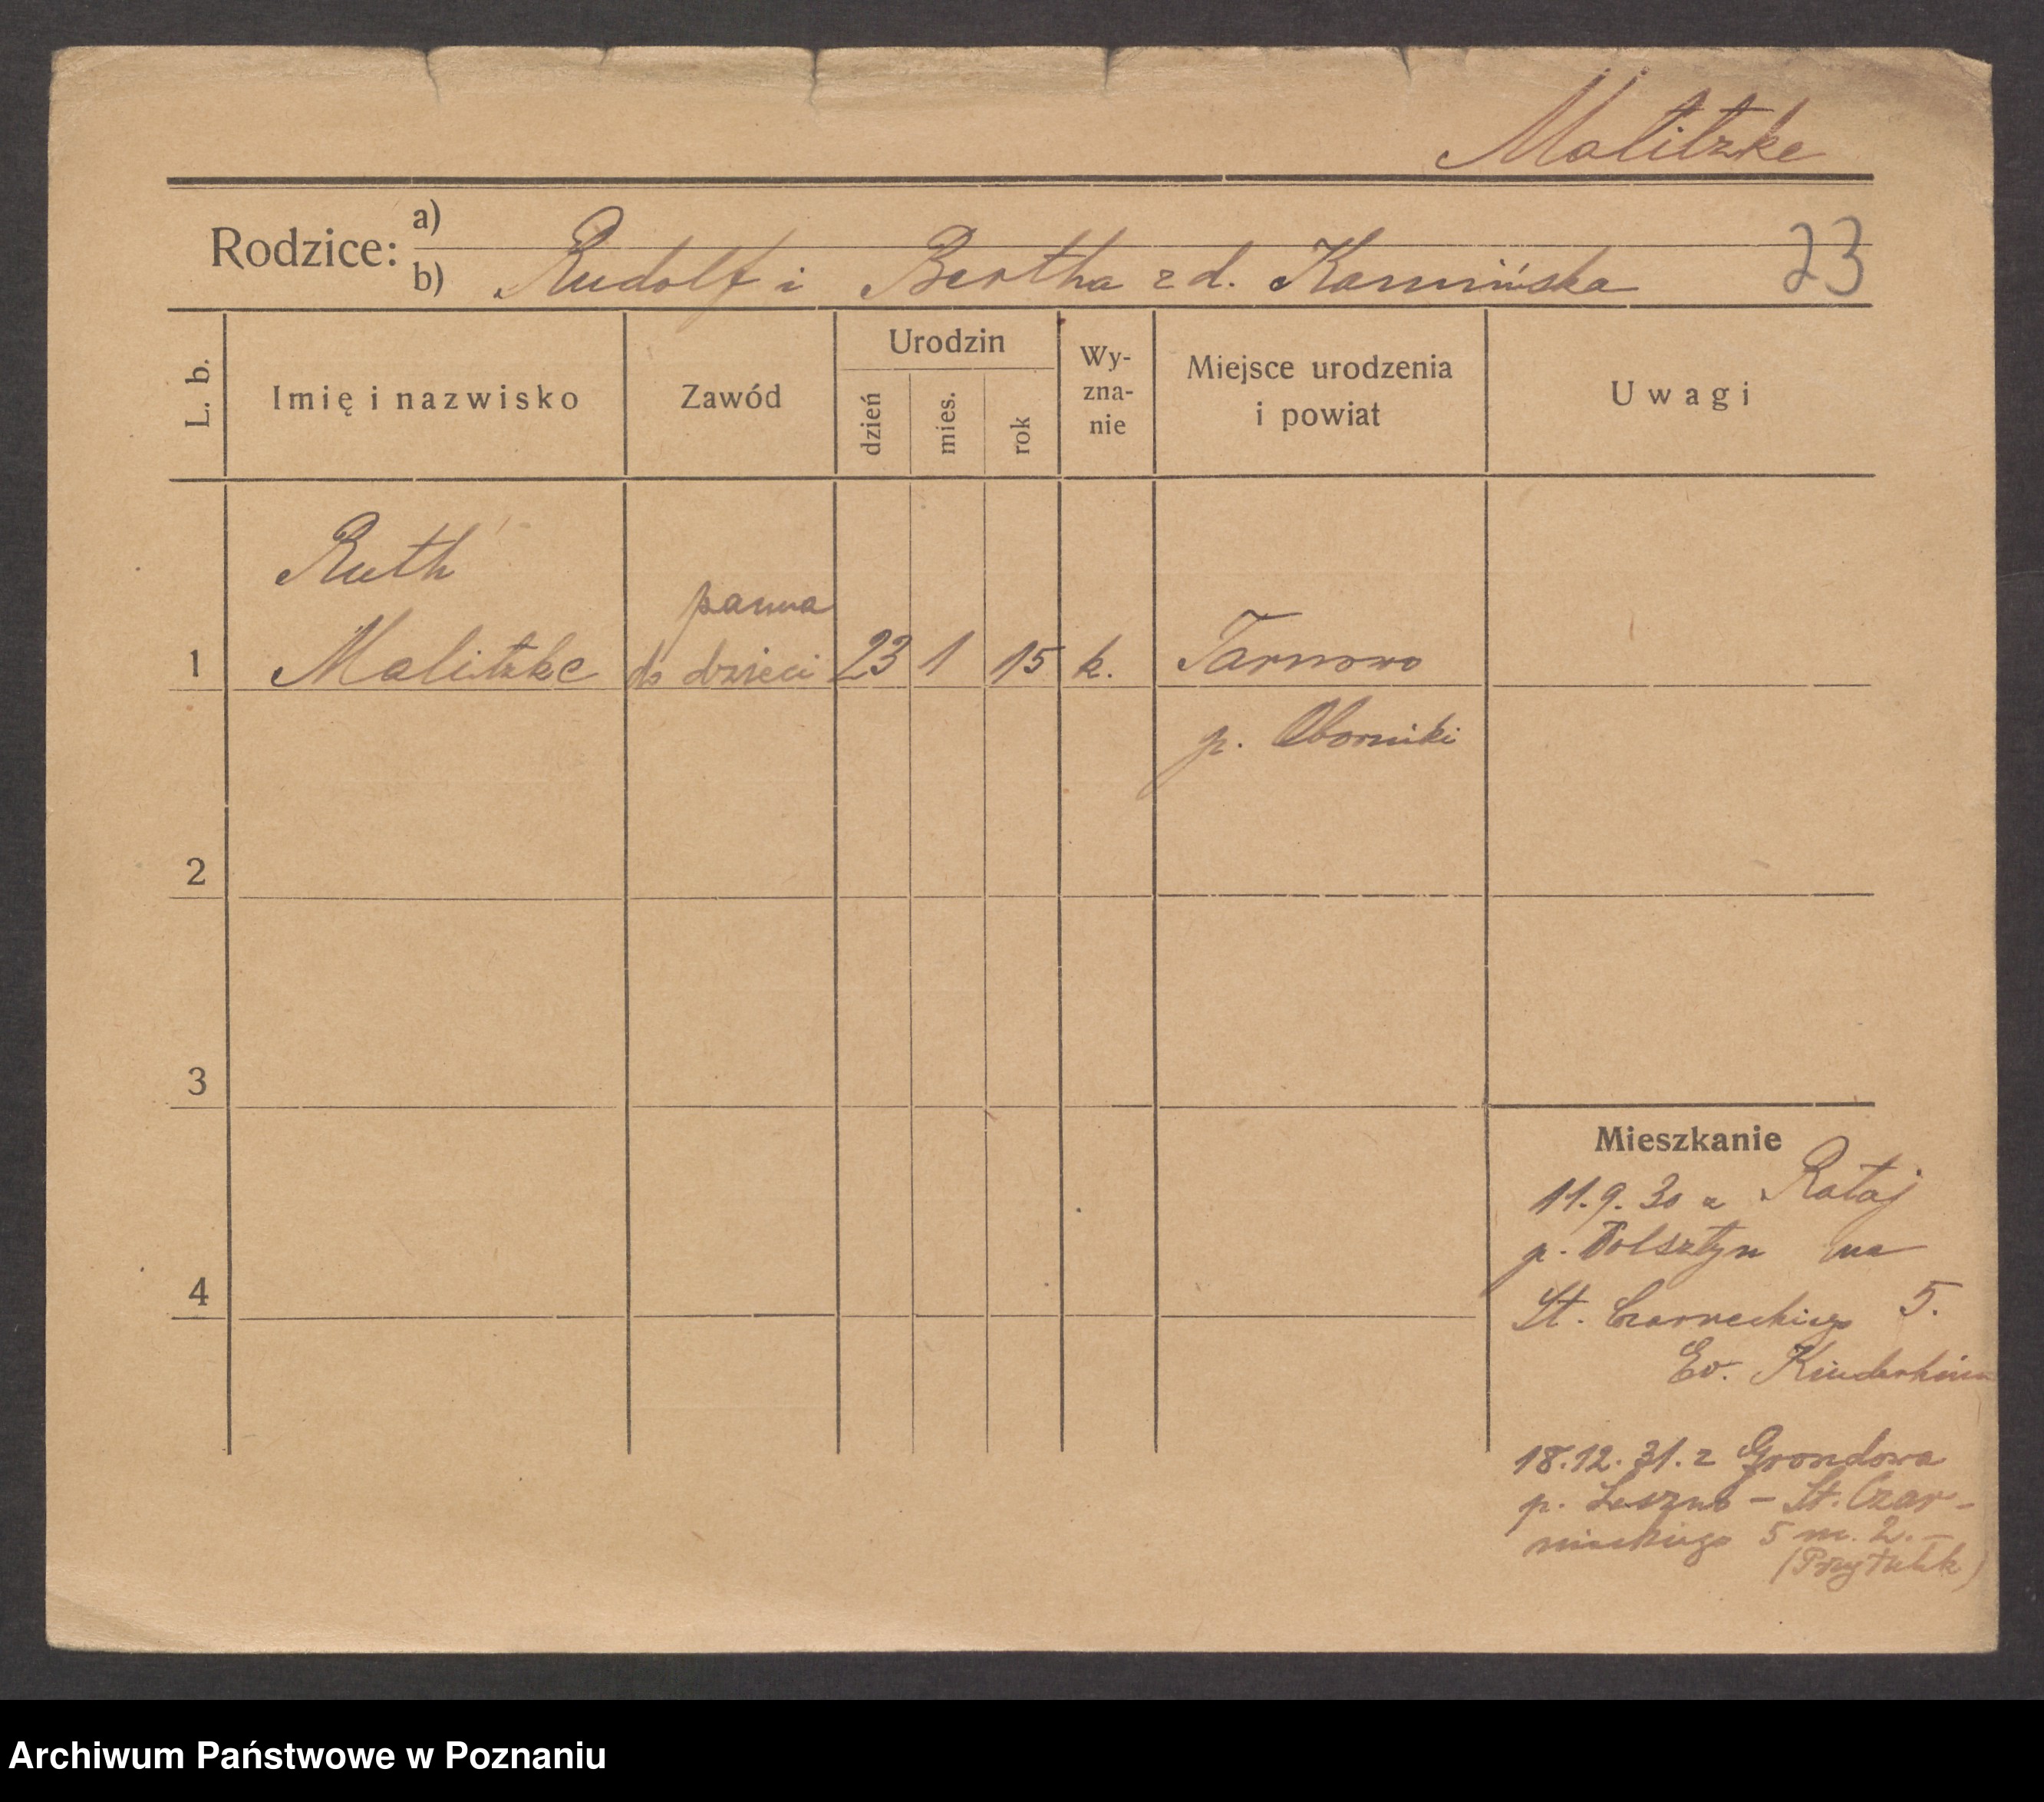 Malitzke
Rodzice:
a)
b) Rudolf i Bertha z d. Kamińska
23
L. b.
Imię i nazwisko
Zawód
Urodzin
dzień
mies.
rok
Wy-
zna-
nie
Miejsce urodzenia
i powiat
Uwagi
Ruth
panna
1 Malitzke do dzieci 23 1 15 k. Tarnowo
p. Oborniki
2
3
4
Mieszkanie
11.9.30 z Rataj
p. Wolsztyn na
St. Czarneckiego 5.
Ev. Kinderheim
18.12.31. z Grondowa
p. Leszno - St. Czar-
nieckiego 5 m. 2. -
Archiwum Państwowe w Poznaniu